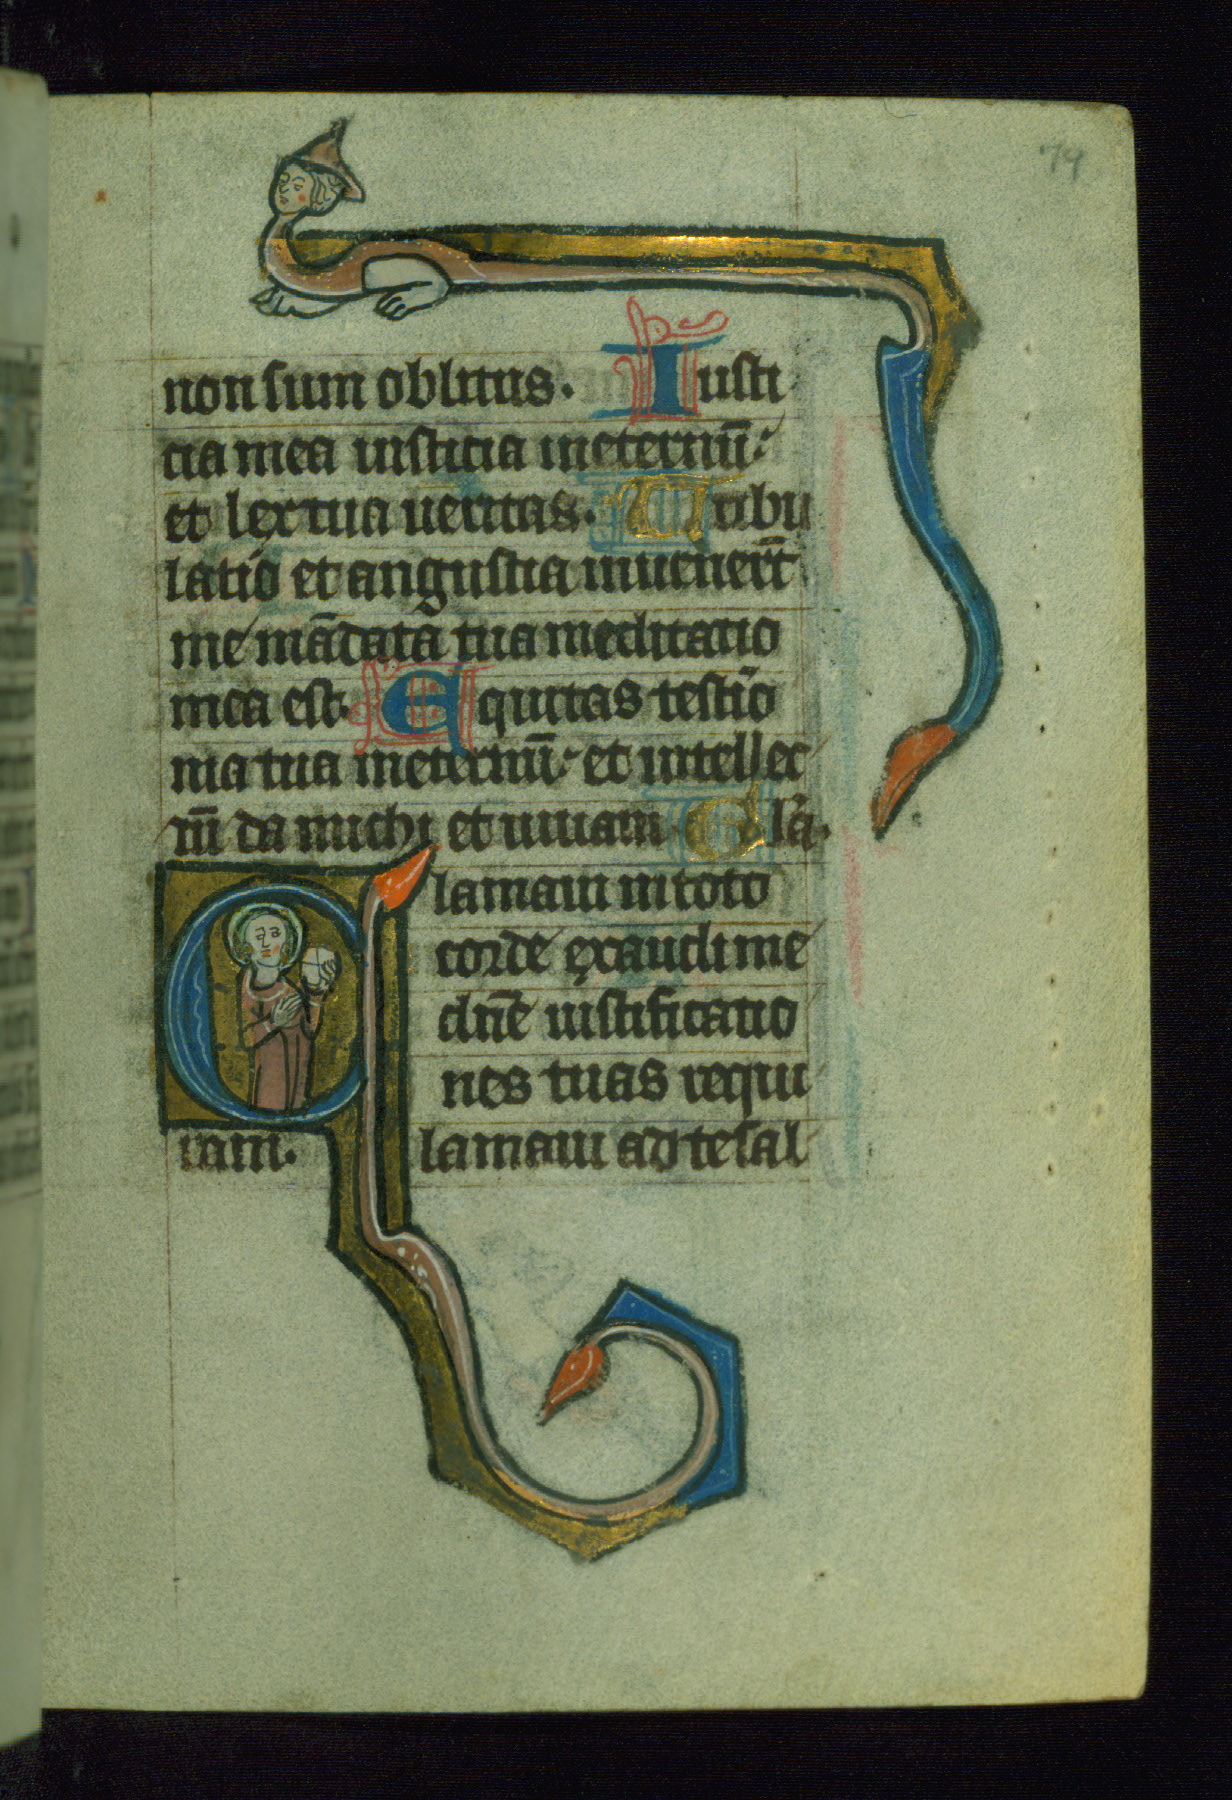 79
non sum oblitus. Iusti
cia mea iusticia ineternū:
et lex tua ueritas. Tribu
latio et angustia inuenert̄
me mādata tua meditatio
mea est. Equitas testio
nia tua ineternū: et intellec
tū da michi et uiuam Gl'a.
lamaui in toto
corde exaudi me
dn̄e iustificatio
nes tuas requi
ram. lamaui ad te sal